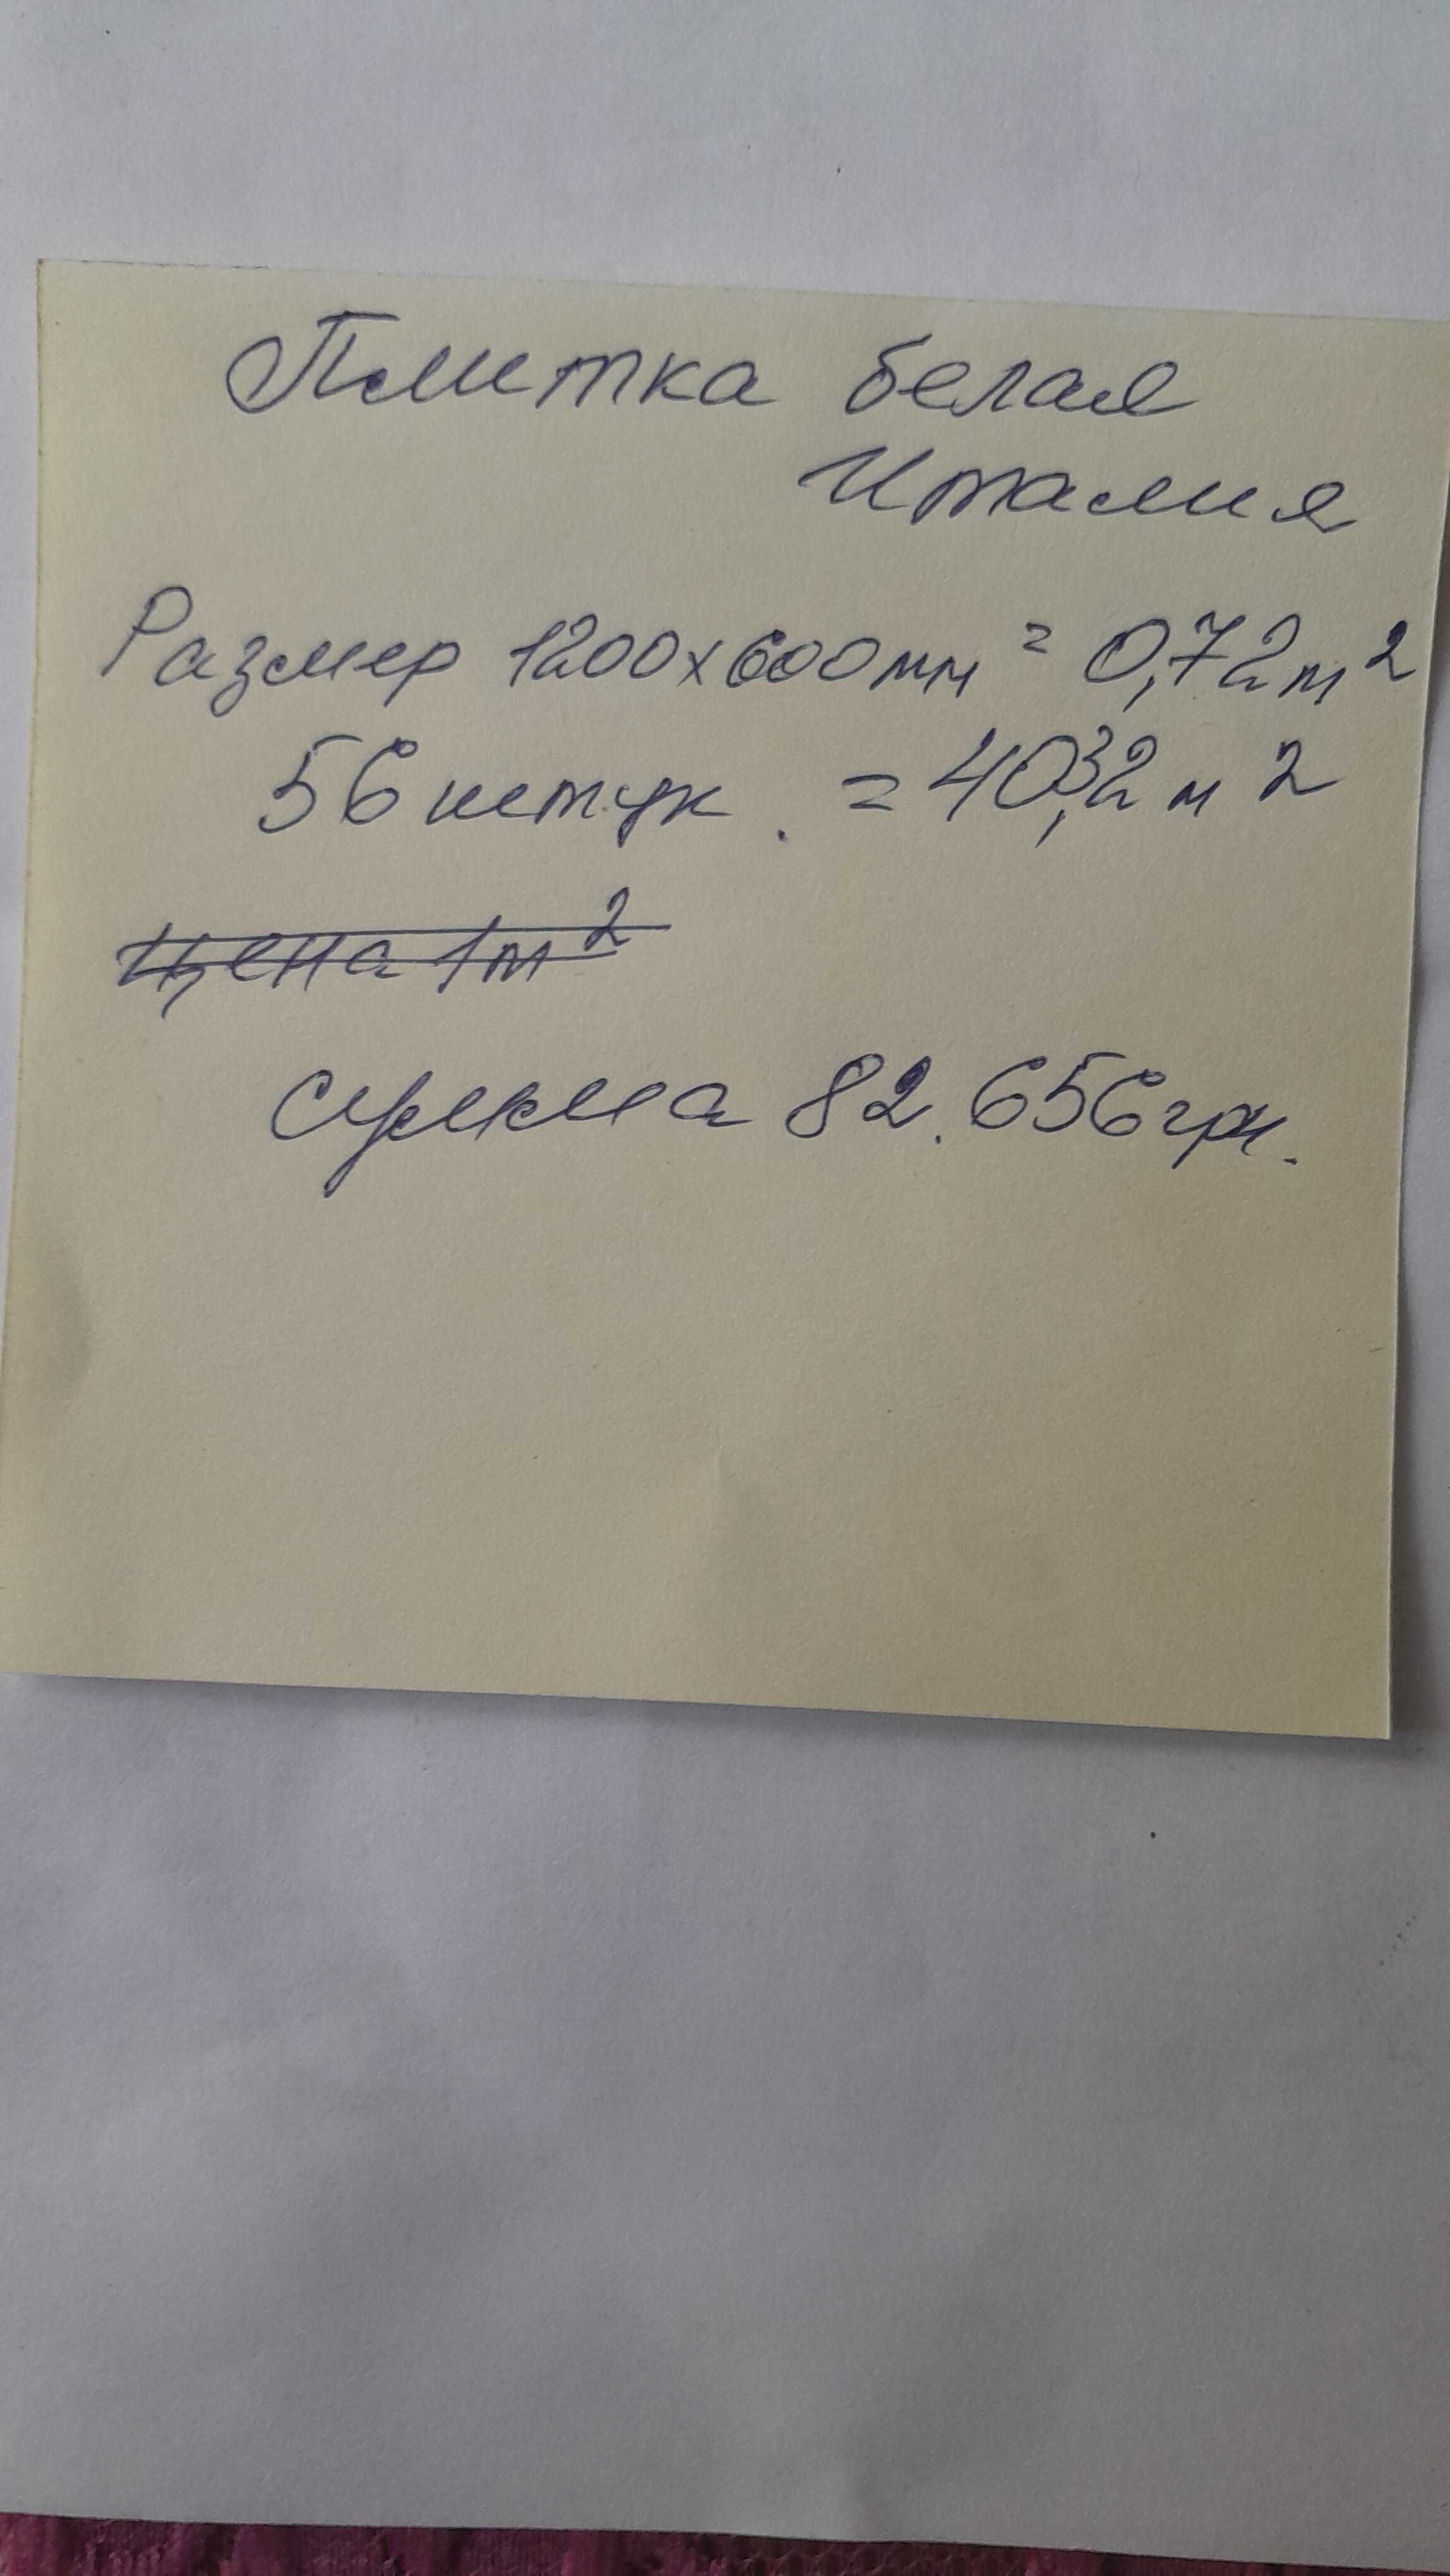 Плитка белая
Италия
Размер 1200х600мм = 0,72м²
56 штук. = 40,32м²
Цена 1м²
сумма 82.656грн.